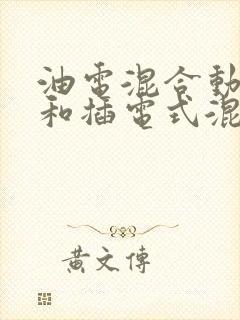 油電混合動
和插電式混
黃文傳